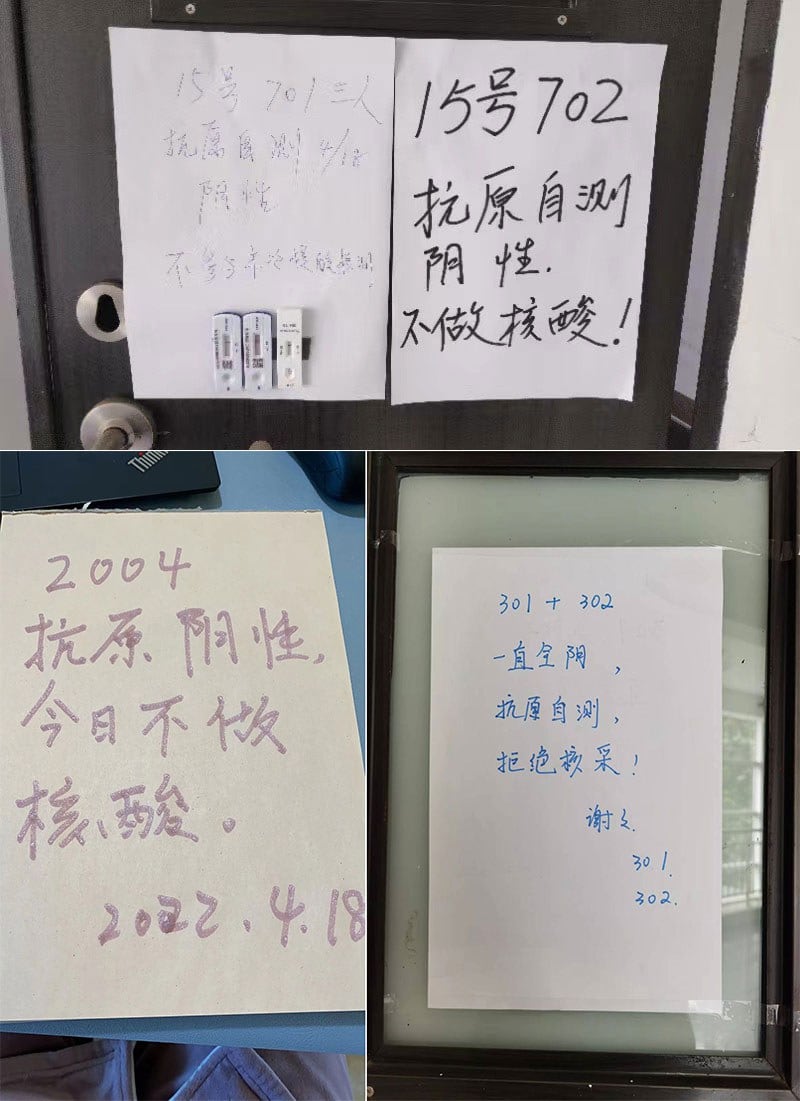 15号 701 三人
抗原自测 4/18
阴性
不参与
15号702
抗原自测
阴性.
不做核酸!
Think
2004
抗原阴性,
今日不做
核酸。
2022.4.18
301 + 302
一直全阴,
抗原自测,
拒绝核采!
谢之.
301.
302.